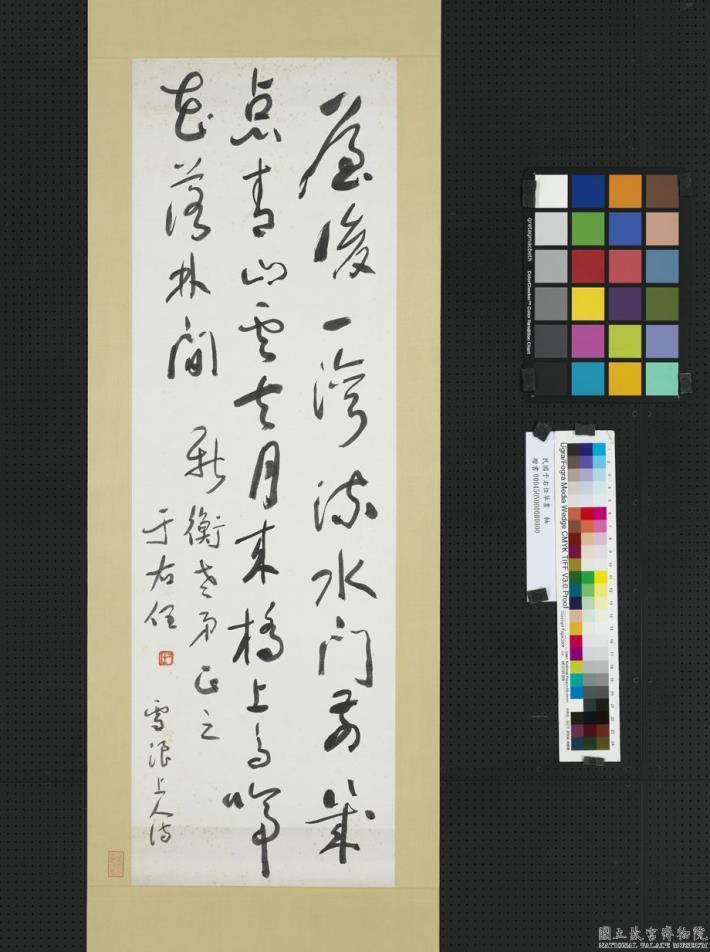 屋後一灣流水門前幾
点青山雲去月來橋上鳥啼
花落林間
新衡老弟正之
于右任
雪浪上人詩
gretagmacbeth
ColorChecker™ Color Rendition Chart
民國于右任草書 軸
贈書 000450N000000000
Ugra/Fogra Media Wedge CMYK TIFF V3.0 Proof
國立故宮博物院
NATIONAL PALACE MUSEUM